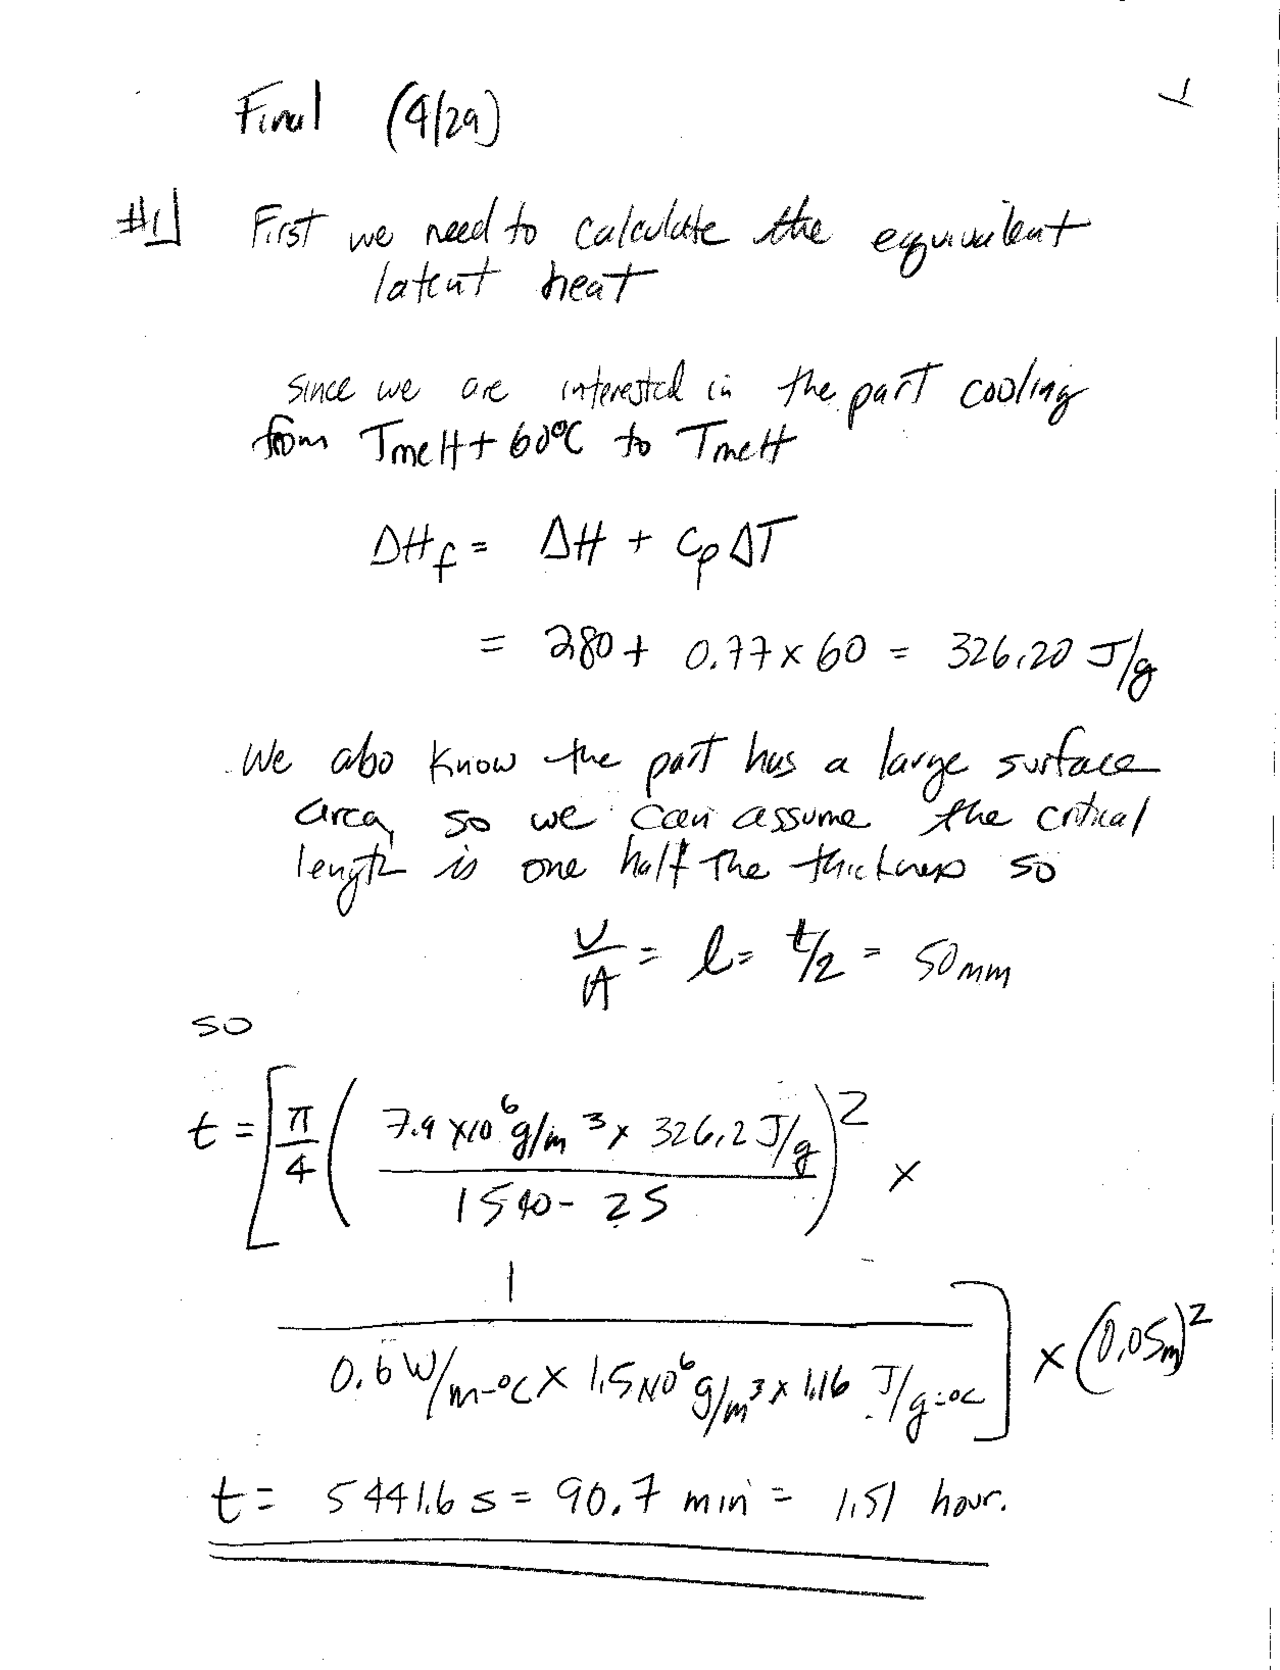 Final (4/29)
1
#1 First we need to calculate the equivalent
latent heat
since we are interested in the part cooling
from Tmelt + 60°C to Tmelt
ΔHf = ΔH + Cp ΔT
= 280 + 0.77 x 60 = 326.20 J/g
We also know the part has a large surface
area, so we can assume the critical
length is one half the thickness so
V/A = l = t/2 = 50mm
so
t = [π/4 (7.9 x10⁶ g/m³ x 326.2 J/g / 1540 - 25)² x
1 / 0.6 W/m-°C x 1.5x10⁶ g/m³ x 1.16 J/g-°C] x (0.05m)²
t = 5441.6 s = 90.7 min = 1.51 hour.